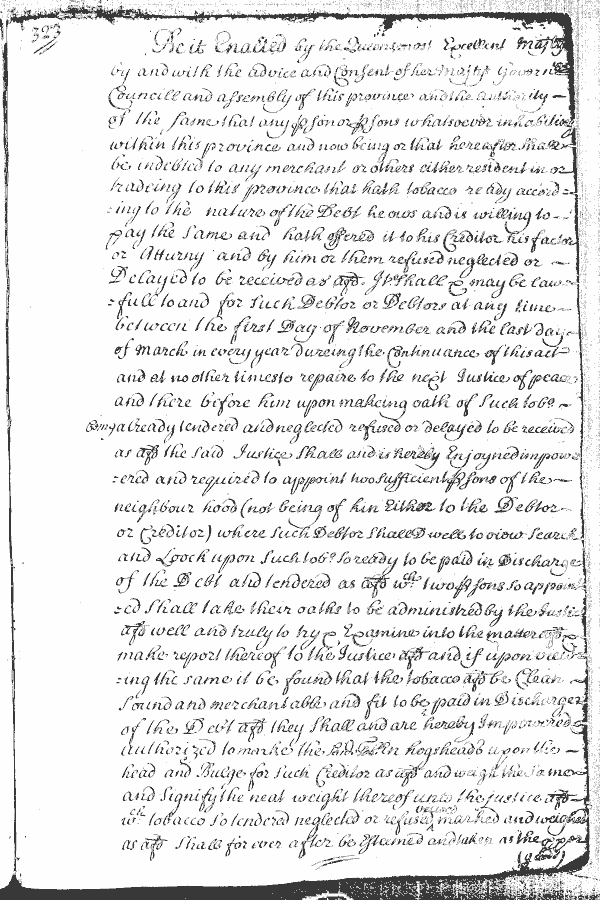 323
Be it Enacted by the Queens most Excellent Majtys
by and with the advice and Consent of her Majtys Govern
Councill and assembly of this province and the authority
of the same that any psson or pssons whatsoever inhabiting
within this province and now being or that hereafter shall
be indebted to any merchant or others either resident in or
tradeing to this province that hath tobacco ready accord=
=ing to the nature of the Debt he ows and is willing to
pay the same and hath offered it to his Creditor his factor
or Atturny and by him or them refused neglected or
Delayed to be received as afsd. It shall & may be law=
=full to and for such Debtor or Debtors at any time
between the first Day of November and the last day
of March in every year dureing the Continuance of this act
and at no other times to repaire to the next Justice of peace
and there before him upon makeing oath of such tobo
being already tendered and neglected refused or delayed to be received
as afsd the said Justice shall and is hereby Enjoyned impow=
=ered and required to appoint two sufficient pssons of the
neighbour hood (not being of kin Either to the Debtor
or Creditor) where such Debtor shall Dwell to view search
and Loock upon such tobo so ready to be paid in Discharge
of the Debt and tendered as afsd wch two pssons so appoint
=ed shall take their oaths to be administred by the Justice
afsd well and truly to try & Examine into the matter afsd &
make report thereof to the Justice afsd and if upon view=
=ing the same it be found that the tobacco afsd be Clean
sound and merchantable and fit to be paid in Discharge
of the Debt afsd they shall and are hereby Impowered &
authorized to marke the hogsheads upon the
head and Bulge for such Creditor as afsd and weigh the same
and signify the neat weight thereof unto the justice afsd
wch tobacco so tendered neglected or refused marked and weighed
as afsd shall for ever after be Esteemed and taken as the